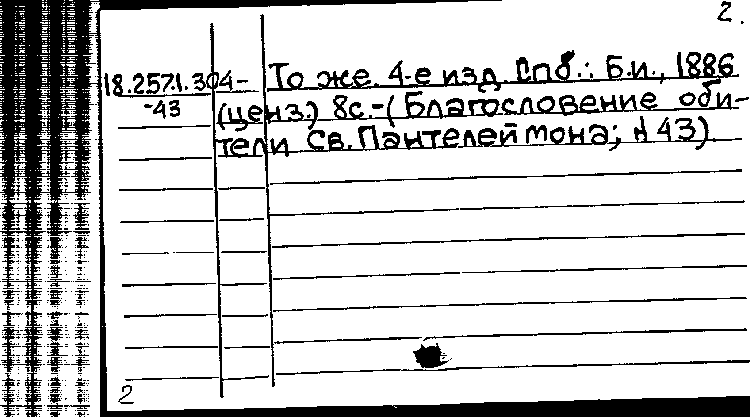 2.
18.257.1.304-
-43
То же. 4-е изд. Спб.: Б.и., 1886
(ценз.) 8с.-(Благословение оби-
тели Св. Пантелеймона; № 43)
2